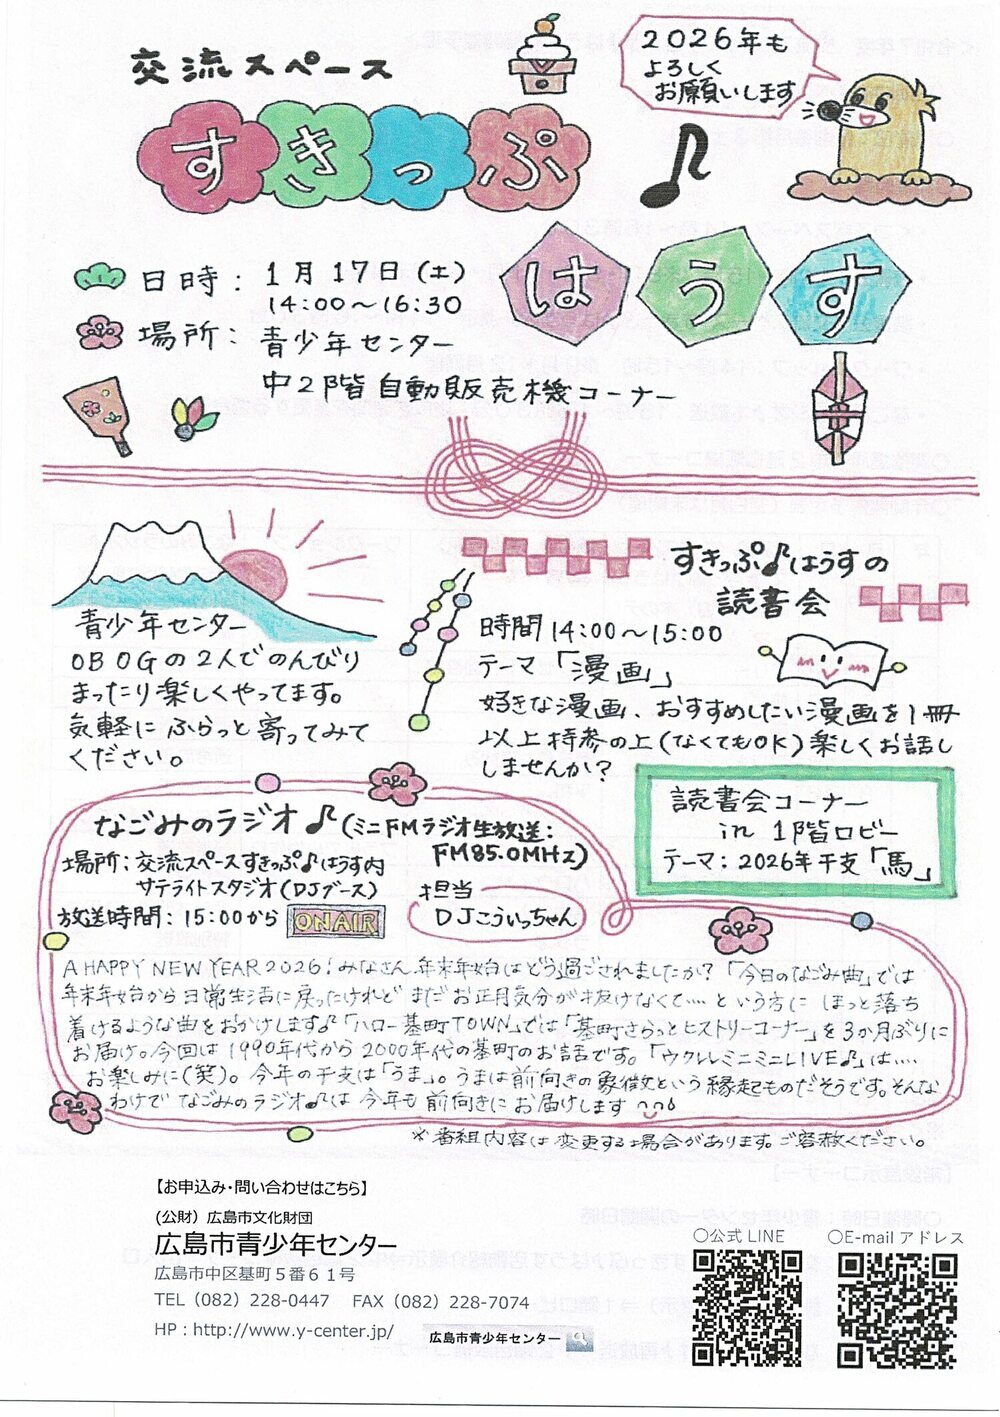 交流スペース
すきっぷ♪はうす
2026年も
よろしく
お願いします
日時：1月17日(土)
14:00〜16:30
場所：青少年センター
中2階自動販売機コーナー
青少年センター
OB OGの2人でのんびり
まったり楽しくやってます。
気軽にふらっと寄ってみて
ください。
すきっぷ♪はうすの
読書会
時間14:00〜15:00
テーマ「漫画」
好きな漫画、おすすめしたい漫画を1冊
以上持参の上(なくてもOK)楽しくお話し
しませんか?
読書会コーナー
in 1階ロビー
テーマ：2026年干支「馬」
なごみのラジオ♪(ミニFMラジオ生放送：
FM85.0MHz)
場所：交流スペースすきっぷ♪はうす内
サテライトスタジオ(DJブース)
放送時間：15:00から ON AIR
担当
DJこういっちゃん
A HAPPY NEW YEAR 2026！みなさん年末年始はどう過ごされましたか？「今日のなごみ曲」では
年末年始から日常生活に戻ったけれどまだお正月気分が抜けなくて…という方にほっと落ち
着けるような曲をおかけします♪「ハロー基町TOWN」では「基町さらっとヒストリーコーナー」を3か月ぶりに
お届け。今回は1990年代から2000年代の基町のお話です。「ウクレレミニミニLIVE♪」は….
お楽しみに(笑)。今年の干支は「うま」。うまは前向きの象徴という縁起ものだそうです。そんな
わけでなごみのラジオ♪は今年も前向きにお届けします
※番組内容は変更する場合があります。ご容赦ください。
【お申込み・問い合わせはこちら】
(公財) 広島市文化財団
広島市青少年センター
広島市中区基町５番６１号
TEL（082）228-0447 FAX（082）228-7074
HP：http://www.y-center.jp/
広島市青少年センター
〇公式 LINE
〇E-mail アドレス